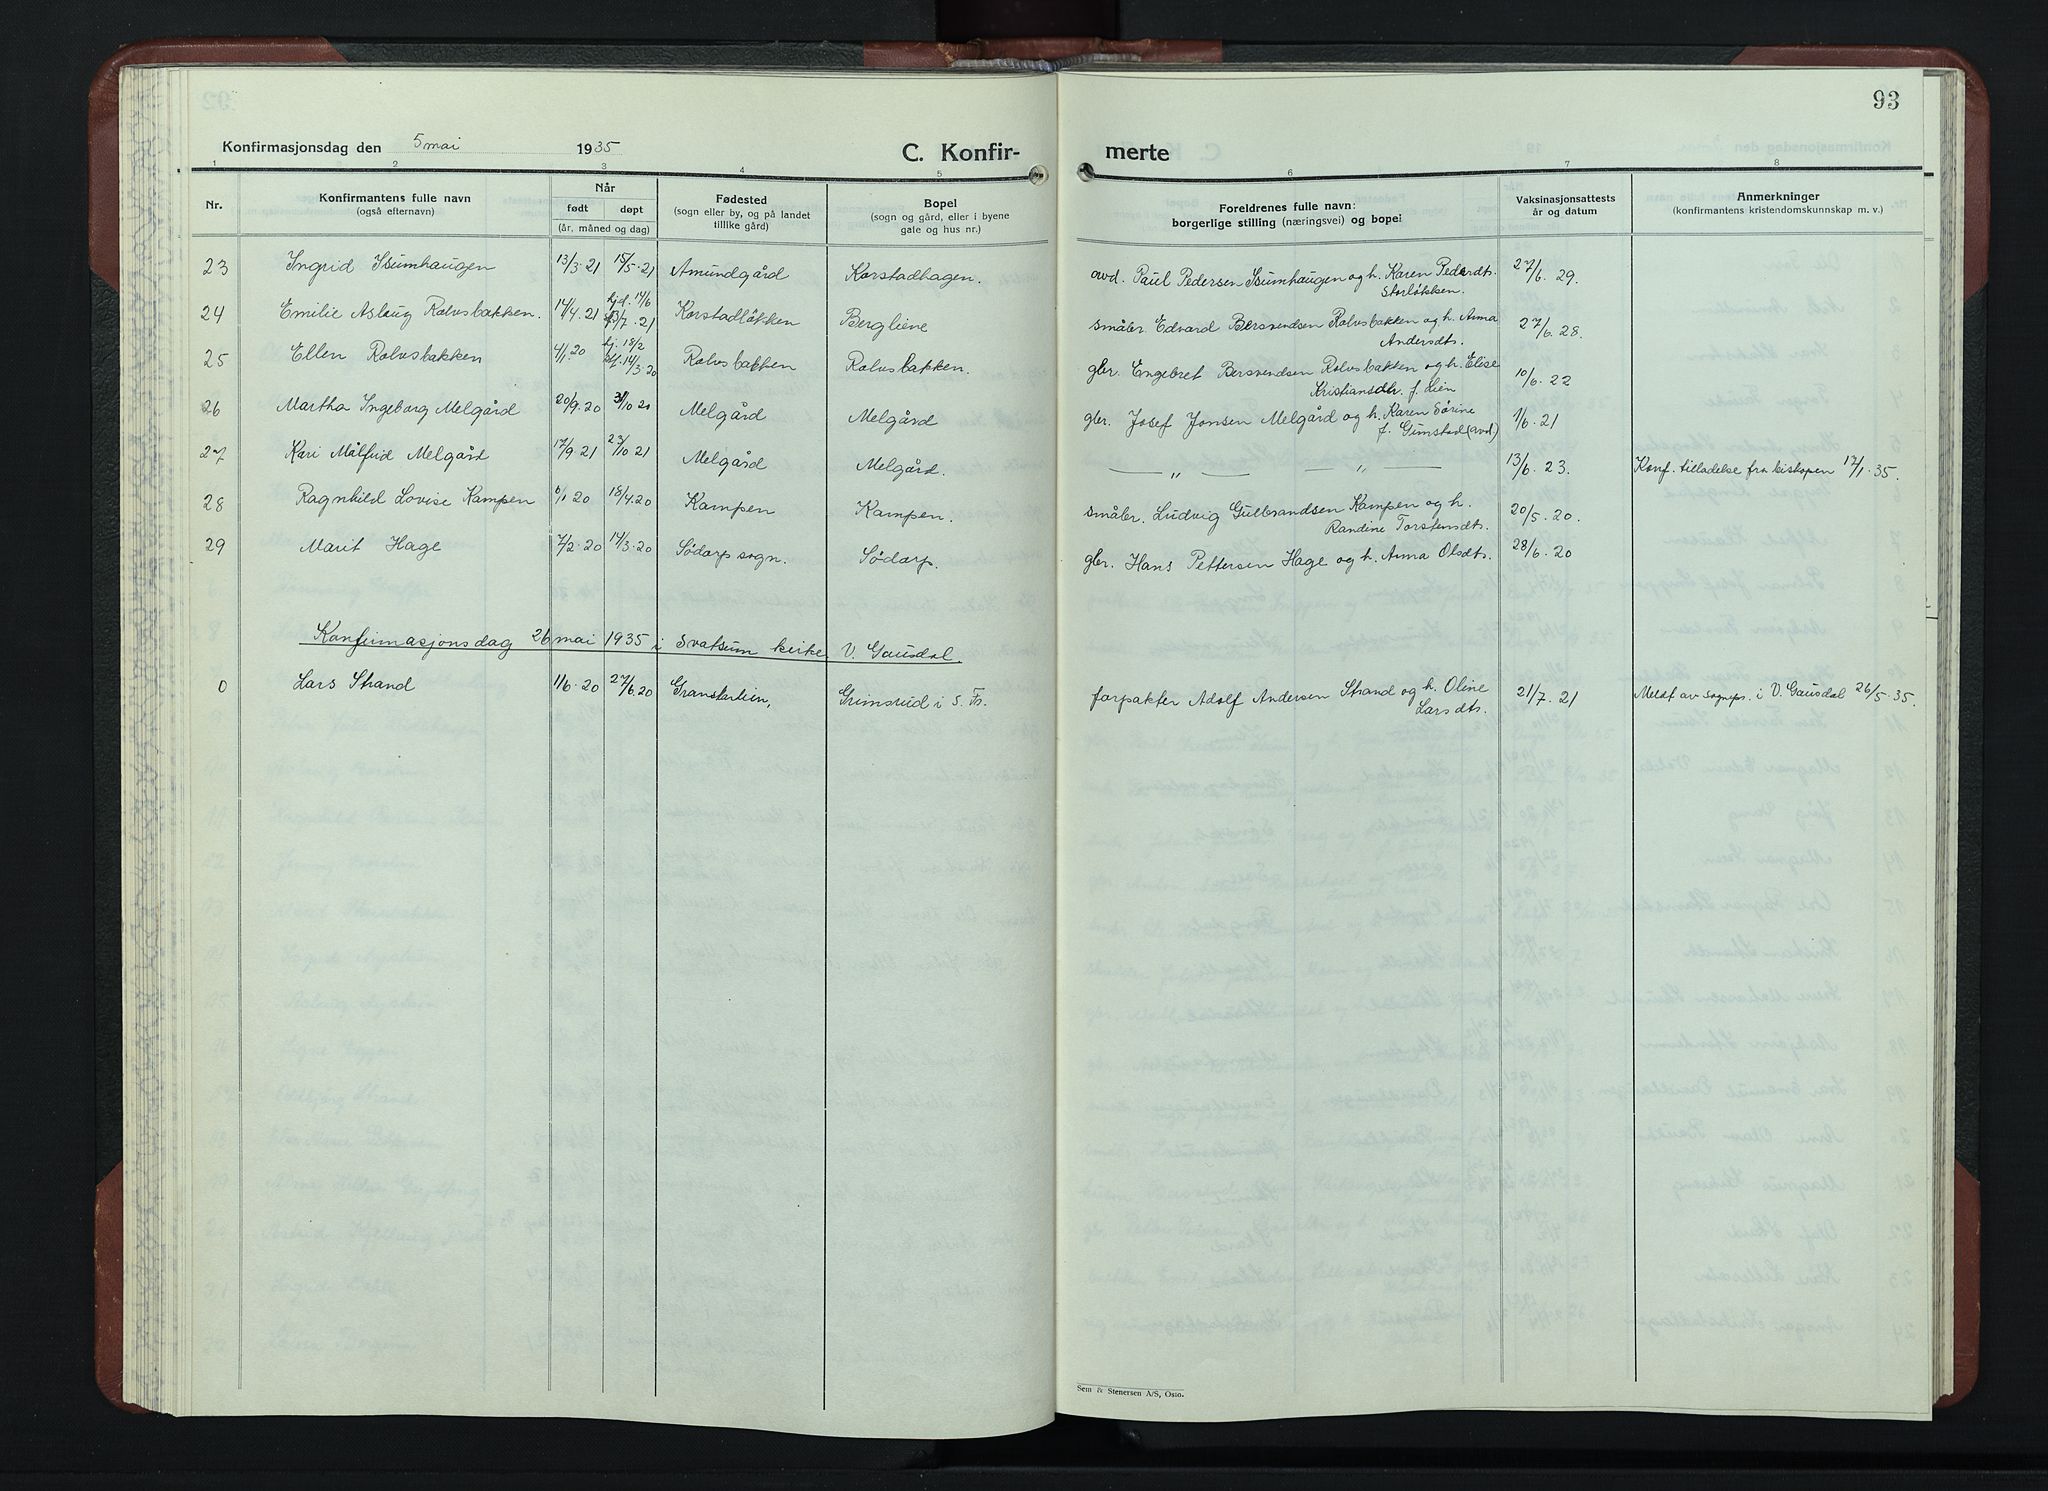 93
Konfirmasjonsdag den 5 mai 1935 C. Konfir- merte
1 2 3 4 5 6 7 8
Nr. Konfirmantens fulle navn (også efternavn) Når født døpt (år, måned og dag) Fødested (sogn eller by, og på landet tillike gård) Bopel (sogn og gård, eller i byene gate og hus nr.) Foreldrenes fulle navn: borgerlige stilling (næringsvei) og bopel Vaksinasjonsattests år og datum Anmerkninger (konfirmantens kristendomskunnskap m. v.)
23 Ingrid Isumhaugen 13/3.21 15/5.21 Amundgård Korstadhagen. avd. Paul Pedersen Isumhaugen og h. Karen Pedersdt. 27/6.29.
Storløkken.
24 Emilie Aslaug Rolvsbakken. 14/4.21 hjd. 14/6 Korstadløkken Bergliene småbr. Edvard Bersvendsen Rolvsbakken og h. Anna 27/6.28.
3/7.21 Andersdt.
25 Ellen Rolvsbakken 4/1.20 hj. 18/2 Rolvsbakken Rolvsbakken. gbr. Engebret Bersvendsen Rolvsbakken og h. Elise 10/6.22
14/3.20 Kristiansdtr. f. Lien
26 Martha Ingeborg Melgård 20/9.20 31/10 20 Melgård Melgård gbr. Josef Jonsen Melgård og h. Karen Sørine 1/6.21
f. Gunstad (avd)
27 Kari Målfrid Melgård 17/9 21 23/10 21 Melgård Melgård. — „ — — „ — 13/6.23. Konf. tilladelse fra biskopen 17/1.35.
28 Ragnhild Lovise Kampen 6/1 20 18/4.20 Kampen Kampen. småbr. Ludvig Gulbrandsen Kampen og h. 20/5.20.
Randine Torstensdt.
29 Marit Hage 7/2.20 14/3.20 Sødorp sogn. Sødorp. gbr. Hans Pettersen Hage og h. Anna Olsdt. 28/6.20
Konfirmasjonsdag 26 mai 1935 i Svatsum kirke V. Gausdal.
0 Lars Strand 1/6.20 27/6.20 Granstarlien, Grimsrud i S. Fr. forpakter Adolf Andersen Strand og h. Oline 21/7.21 Meldt av sognepr. i V. Gausdal 26/5.35.
Larsdt.
Sem & Stenersen A/S, Oslo.